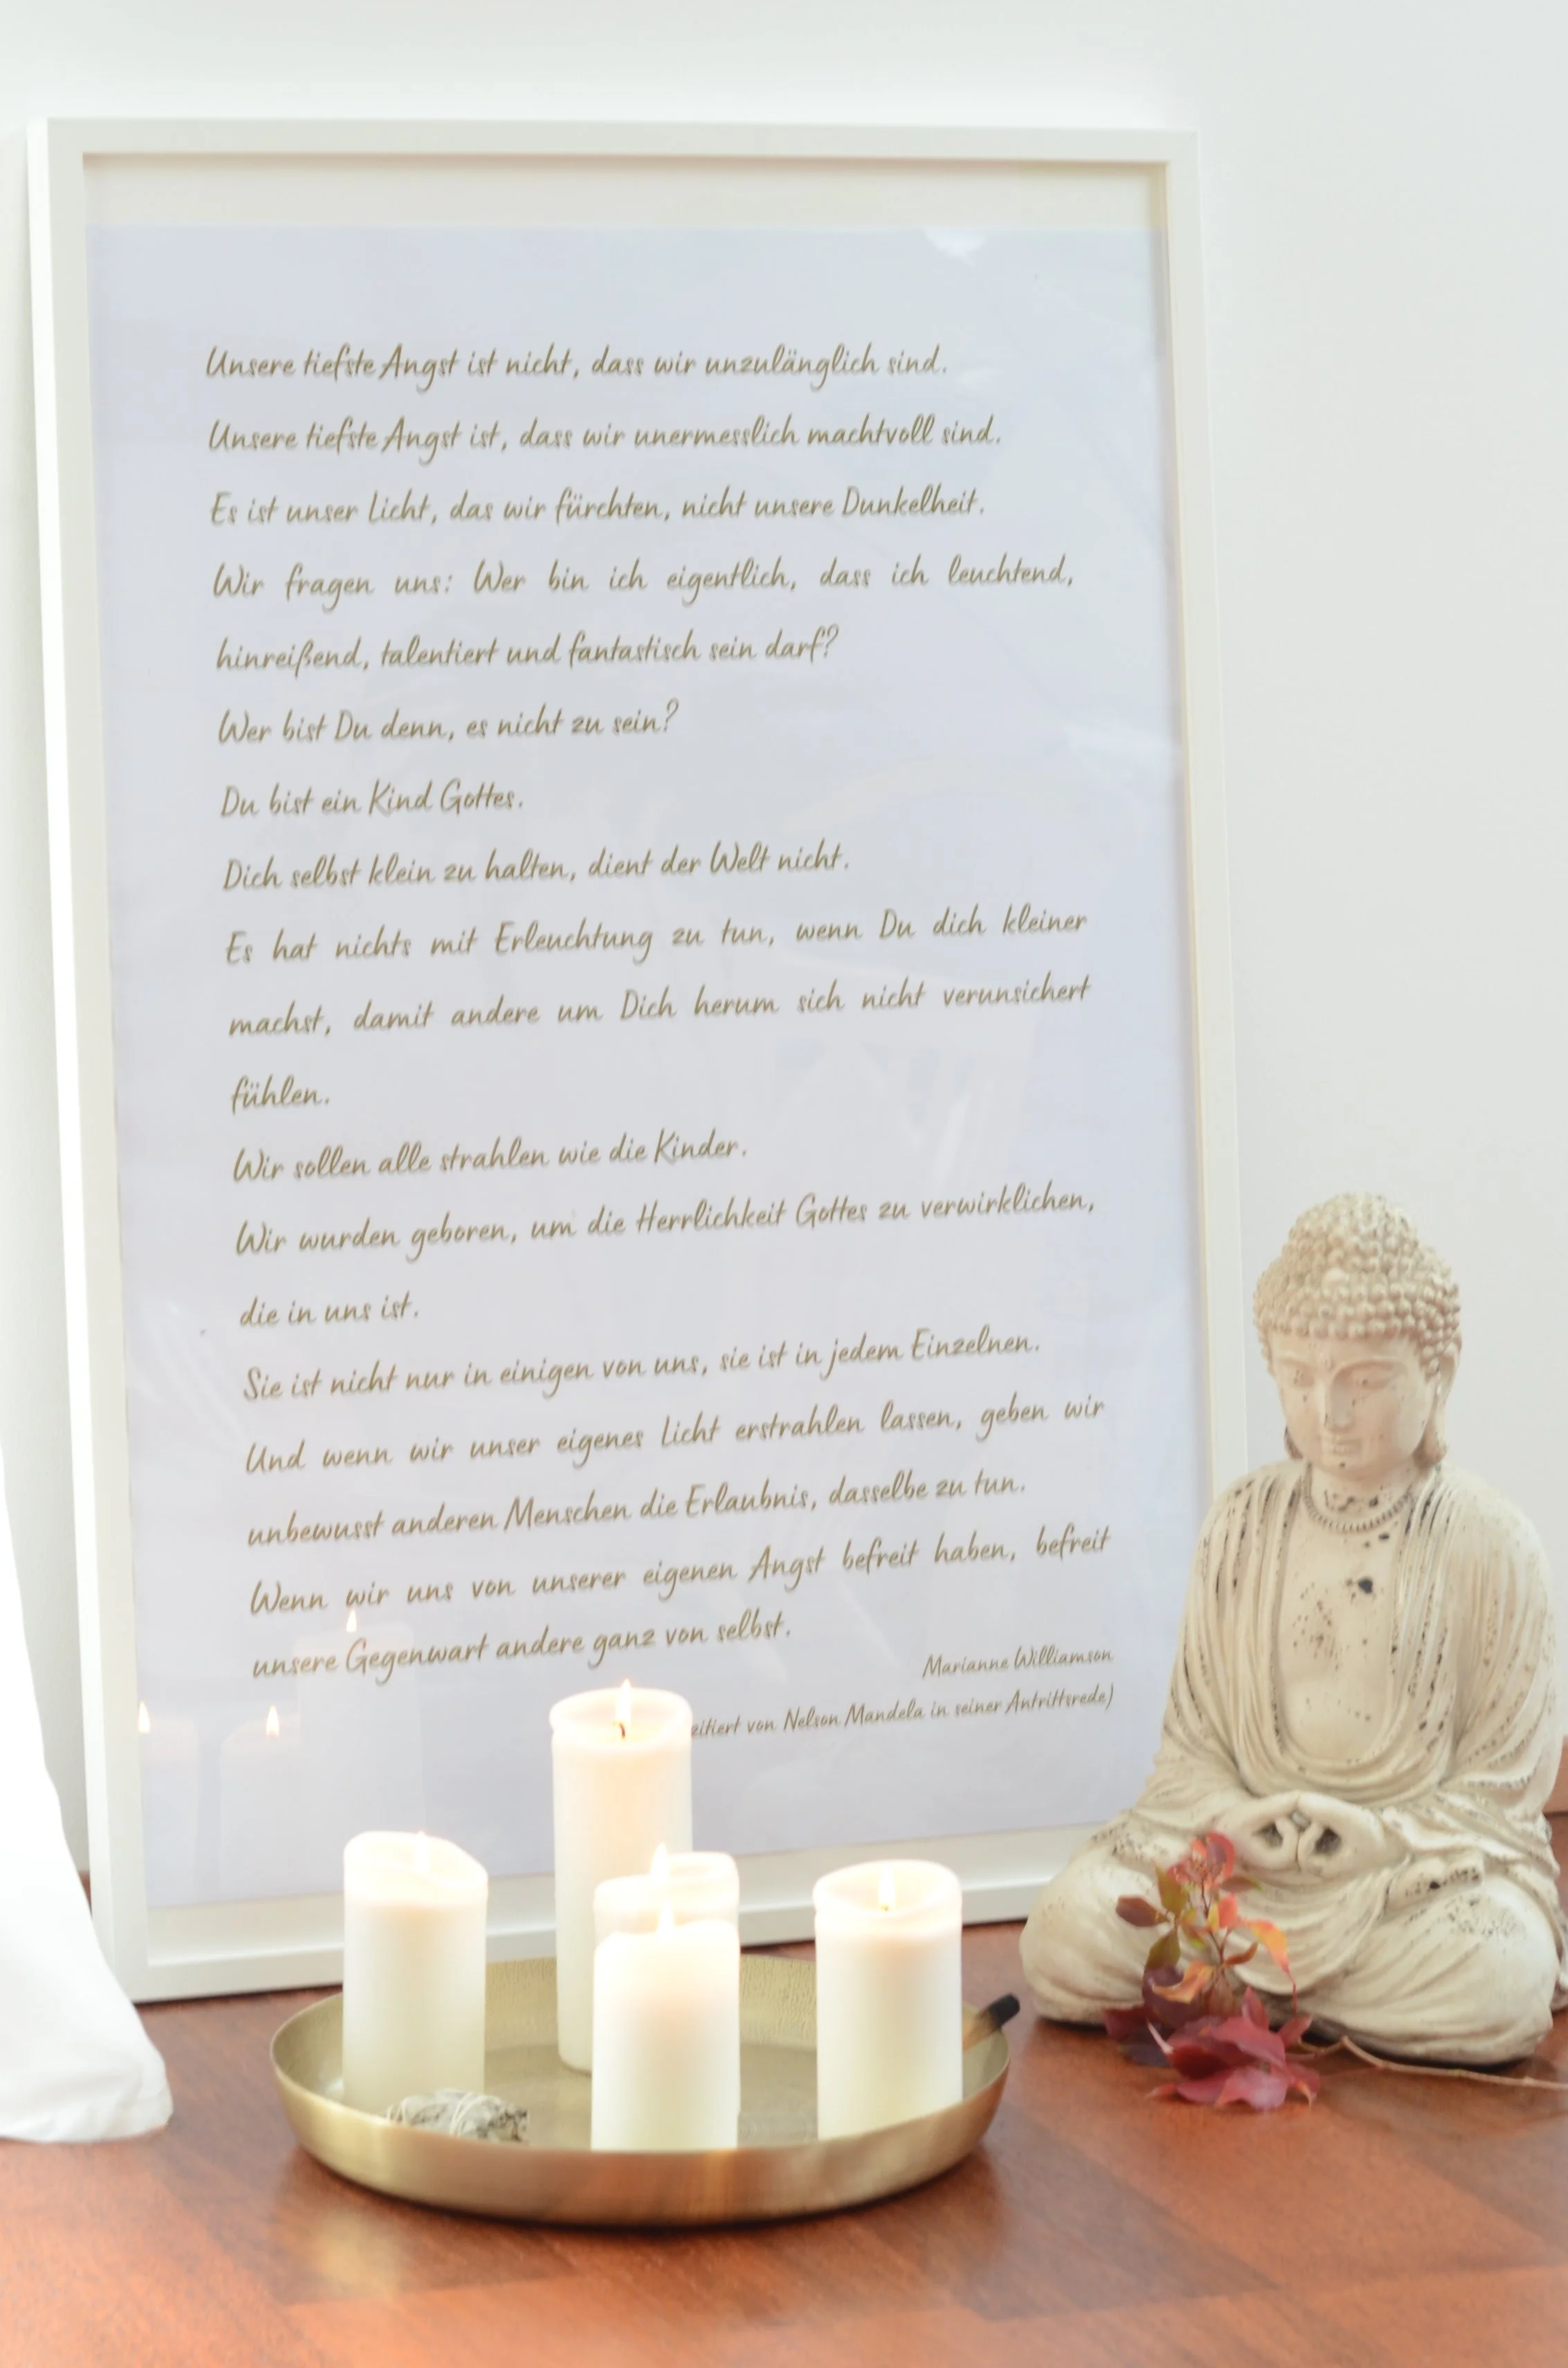 Unsere tiefste Angst ist nicht, dass wir unzulänglich sind.
Unsere tiefste Angst ist, dass wir unermesslich machtvoll sind.
Es ist unser Licht, das wir fürchten, nicht unsere Dunkelheit.
Wir fragen uns: Wer bin ich eigentlich, dass ich leuchtend,
hinreißend, talentiert und fantastisch sein darf?
Wer bist Du denn, es nicht zu sein?
Du bist ein Kind Gottes.
Dich selbst klein zu halten, dient der Welt nicht.
Es hat nichts mit Erleuchtung zu tun, wenn Du dich kleiner
machst, damit andere um Dich herum sich nicht verunsichert
fühlen.
Wir sollen alle strahlen wie die Kinder.
Wir wurden geboren, um die Herrlichkeit Gottes zu verwirklichen,
die in uns ist.
Sie ist nicht nur in einigen von uns, sie ist in jedem Einzelnen.
Und wenn wir unser eigenes Licht erstrahlen lassen, geben wir
unbewusst anderen Menschen die Erlaubnis, dasselbe zu tun.
Wenn wir uns von unserer eigenen Angst befreit haben, befreit
unsere Gegenwart andere ganz von selbst.
Marianne Williamson
zitiert von Nelson Mandela in seiner Antrittsrede)